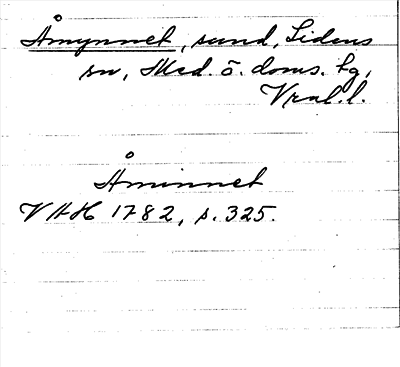 Åmynnet, sund, Lidens
sn, Med. ö. doms. tg,
Vrnl. l.
Åminnet
VAH 1782, s. 325.